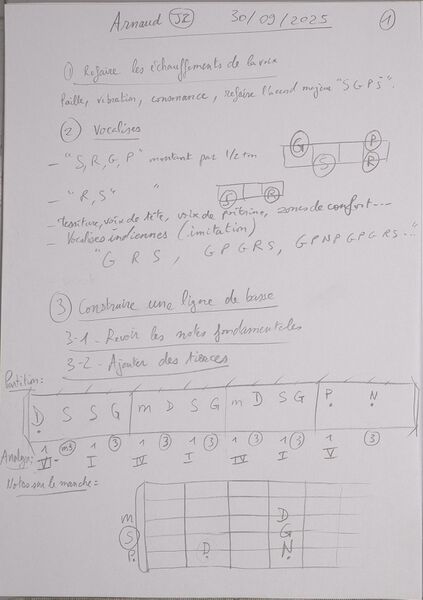 Arnaud JZ 30/09/2025 1
1 Refaire les échauffements de la voix
Paille, vibration, consonance, refaire l'accord majeur "S G P Ṡ".
2 Vocalises
- "S, R, G, P" montant par 1/2 ton
G P
S R
- "R, S" "
S R
- Tessiture, voix de tête, voix de poitrine, zones de confort...
- Vocalises indiennes (imitation)
"G R S, G P G R S, G P N P G P G R S..."
3 Construire une ligne de basse
3-1 - Revoir les notes fondamentales
3-2 - Ajouter des tierces
Partition:
Ḍ S S G m D S G m D S G P̣ Ṇ
Analyse: 1 m3 1 3 1 3 1 3 1 3 1 3 1 3
VI- I IV I IV I V
Notes sur le manche =
m D
S G
P. Ḍ Ṇ